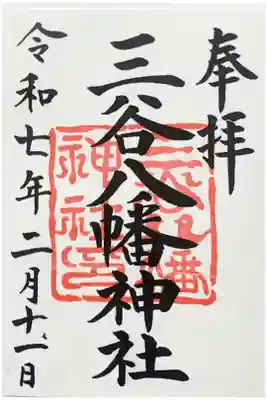 奉拝
三谷八幡神社
令和七年二月十一日